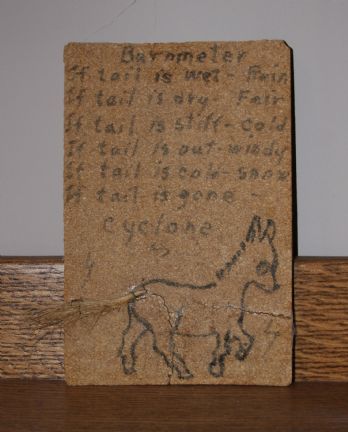 Barometer
If tail is wet - Rain
If tail is dry - Fair
If tail is stiff - Cold
If tail is out - windy
If tail is cold - Snow
If tail is gone -
Cyclone